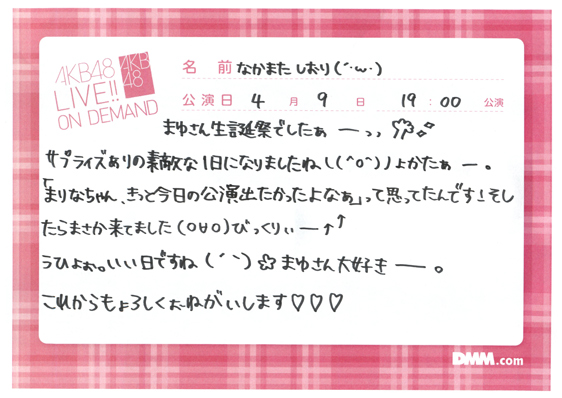 AKB48
LIVE!!
ON DEMAND
AKB
48
名前 なかまた しおり (´･ω･)
公演日 4月9日 19:00 公演
まゆさん生誕祭でしたぁーっっ
サプライズありの素敵な1日になりましたね\(^o^)/よかたぁー。
「まりなちゃん、きっと今日の公演出たかったよなぁ」って思ってたんです!そし
たらまさか来てました(０∀０)びっくりぃー↑↑
うひょぉ。いい日ですね(´｀)☆まゆさん大好きー。
これからもよろしくおねがいします♡♡♡
DMM.com